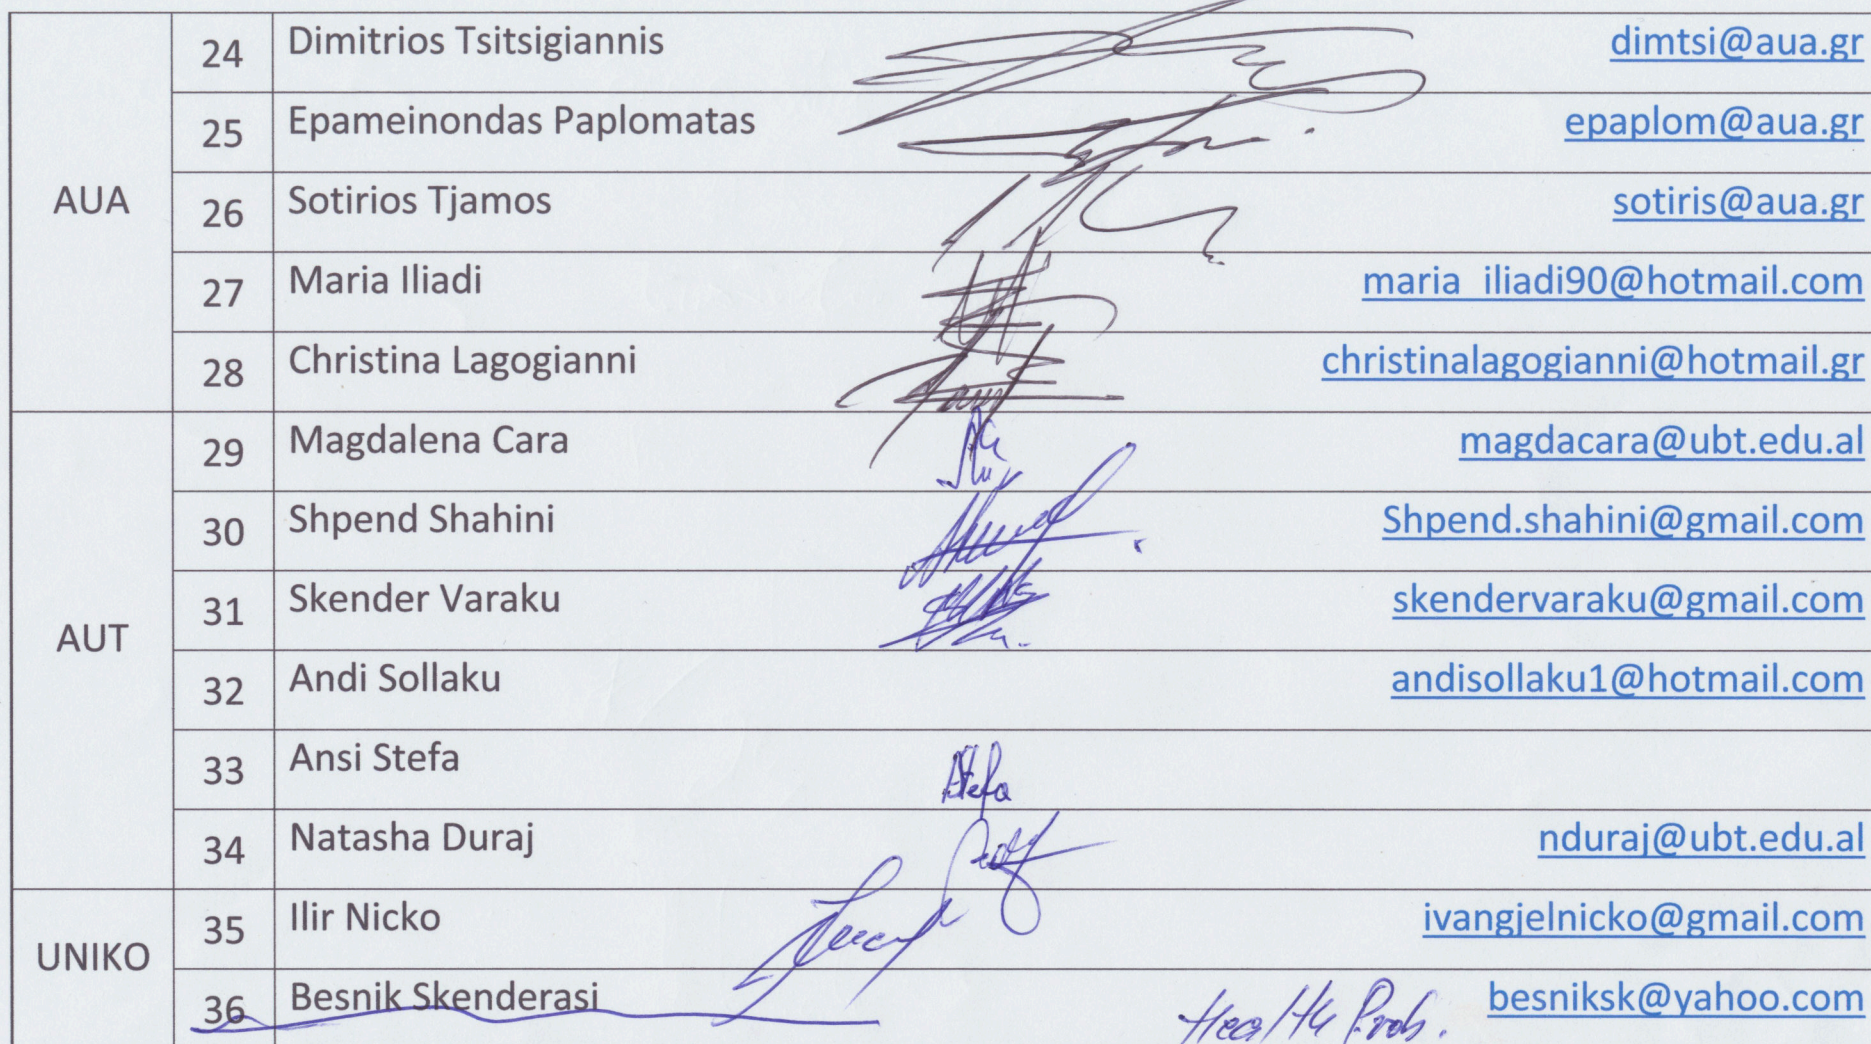 24 Dimitrios Tsitsigiannis dimtsi@aua.gr
25 Epameinondas Paplomatas epaplom@aua.gr
AUA 26 Sotirios Tjamos sotiris@aua.gr
27 Maria Iliadi maria_iliadi90@hotmail.com
28 Christina Lagogianni christinalagogianni@hotmail.gr
29 Magdalena Cara magdacara@ubt.edu.al
30 Shpend Shahini Shpend.shahini@gmail.com
31 Skender Varaku skendervaraku@gmail.com
AUT
32 Andi Sollaku andisollaku1@hotmail.com
33 Ansi Stefa AStefa
34 Natasha Duraj nduraj@ubt.edu.al
35 Ilir Nicko ivangjelnicko@gmail.com
UNIKO
36 Besnik Skenderasi Health Prob. besniksk@yahoo.com